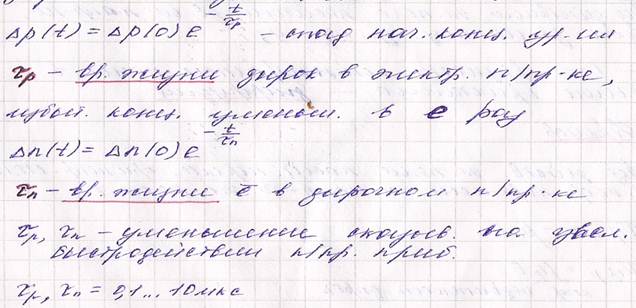 Δp(t) = Δp(0) e^(-t/τp) – спад нач. конц. ур-ия
τp – вр. жизни дырок в электр. п/пр-ке,
избыт. конц. уменьш. в e раз
Δn(t) = Δn(0) e^(-t/τn)
τn – вр. жизни ē в дырочном п/пр-ке
τp, τn – уменьшение сказыв. на увел.
быстродействии п/пр. приб.
τp, τn = 0,1...10 мкс